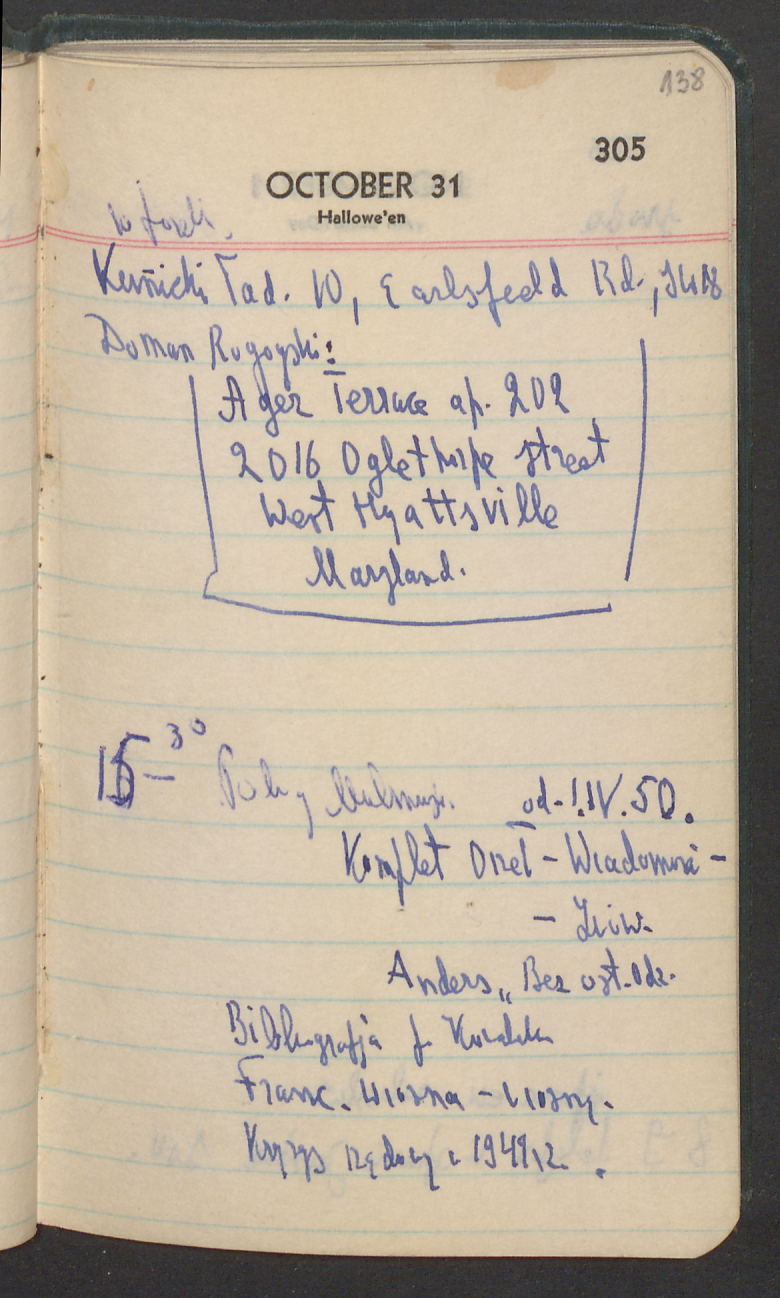 138
305
OCTOBER 31
Hallowe'en
Tad. 10, Earlsfeeld Rd.,
Doman Rogoyski:
Ager Terrace ap. 202
2016 Oglethorpe Street
West Hyattsville
Maryland.
15-30 od. 1.IV.50.
Komplet Orzeł - Wiadomości -
-
Anders „Bez ost. Odz.
Bibliografja
Franc. Wiosna -
Kryzys rządowy 1949